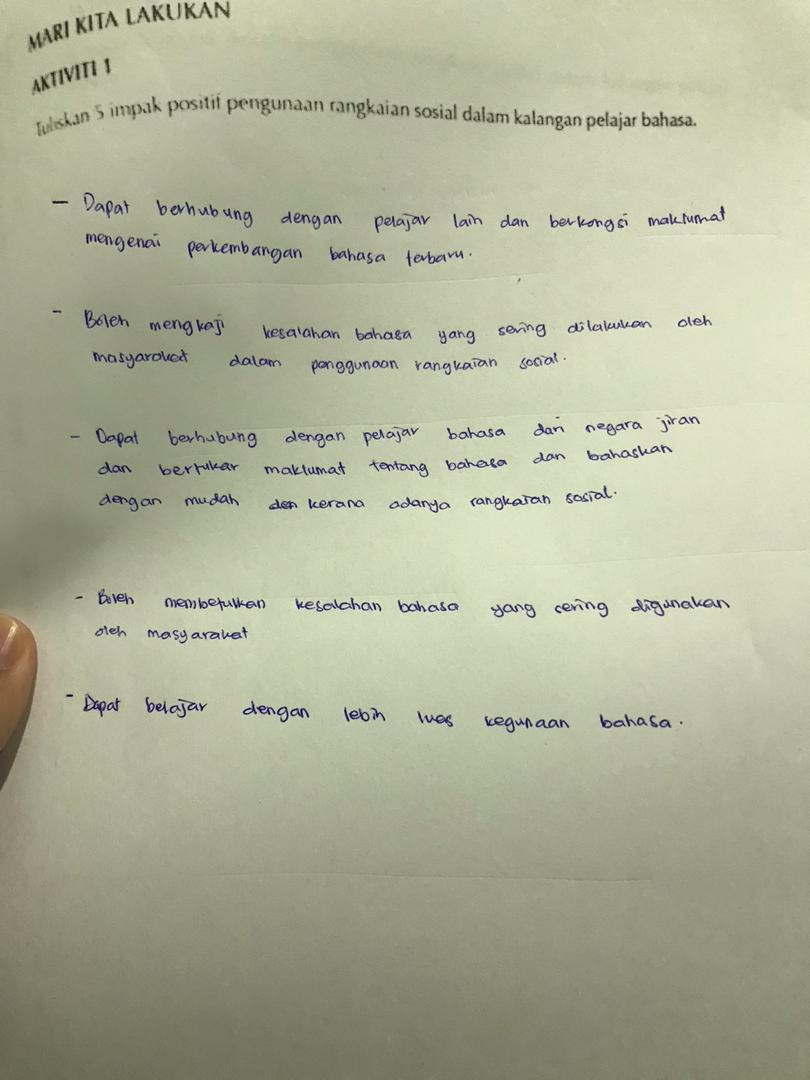 MARI KITA LAKUKAN
AKTIVITI 1
Tuliskan 5 impak positif pengunaan rangkaian sosial dalam kalangan pelajar bahasa.
– Dapat berhubung dengan pelajar lain dan berkongsi maklumat
mengenai perkembangan bahasa terbaru.
- Boleh mengkaji kesalahan bahasa yang sering dilakukan oleh
masyarakat dalam penggunaan rangkaian sosial.
- Dapat berhubung dengan pelajar bahasa dari negara jiran
dan bertukar maklumat tentang bahasa dan bahaskan
dengan mudah kerana adanya rangkaian sosial.
- Boleh membetulkan kesalahan bahasa yang sering digunakan
oleh masyarakat
- Dapat belajar dengan lebih luas kegunaan bahasa.